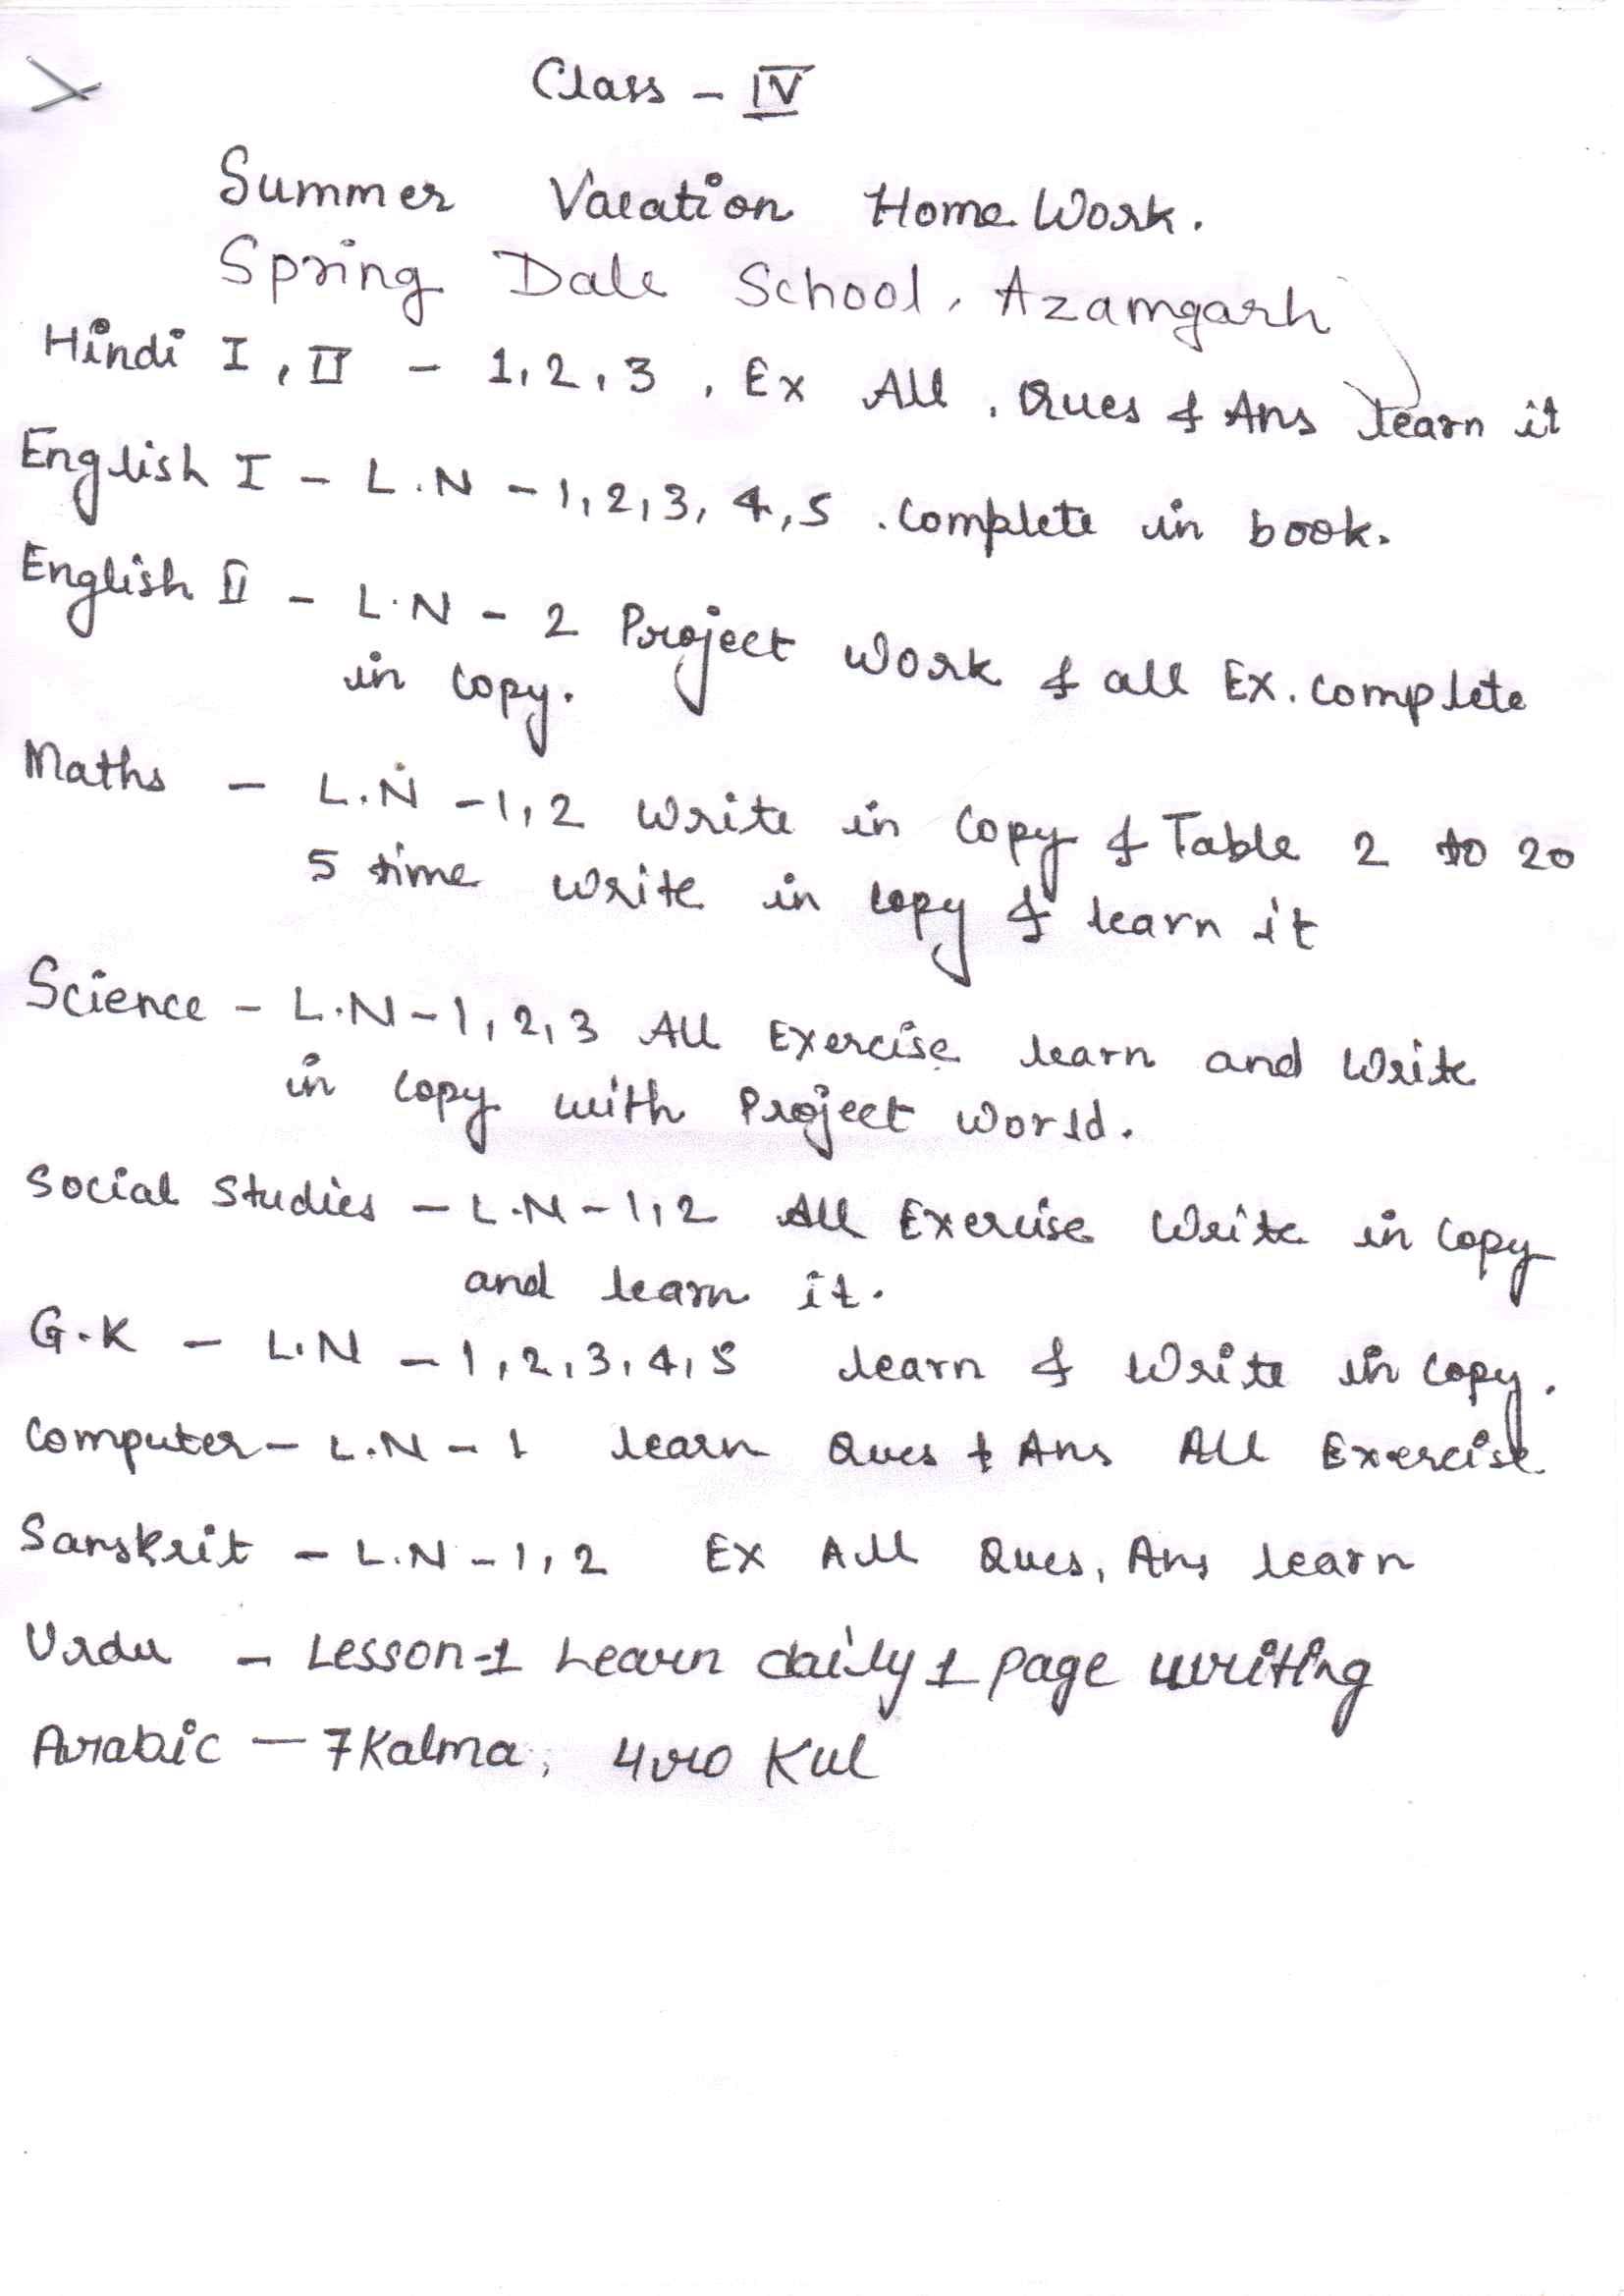 Class - IV
Summer Vacation Home Work.
Spring Dale School, Azamgarh
Hindi I, II - 1, 2, 3, Ex All, Ques & Ans learn it
English I - L.N - 1, 2, 3, 4, 5. Complete in book.
English II - L.N - 2 Project Work & all Ex. complete
in copy.
Maths - L.N - 1, 2 Write in Copy & Table 2 to 20
5 time Write in copy & learn it
Science - L.N - 1, 2, 3 All Exercise learn and Write
in copy with Project World.
Social Studies - L.N - 1, 2 All Exercise Write in Copy
and learn it.
G.K - L.N - 1, 2, 3, 4, 5 learn & Write in Copy.
Computer - L.N - 1 learn Ques & Ans All Exercise
Sanskrit - L.N - 1, 2 Ex All Ques, Ans learn
Urdu - Lesson-1 Learn daily 1 page writing
Arabic - 7 Kalma, 4ro Kul